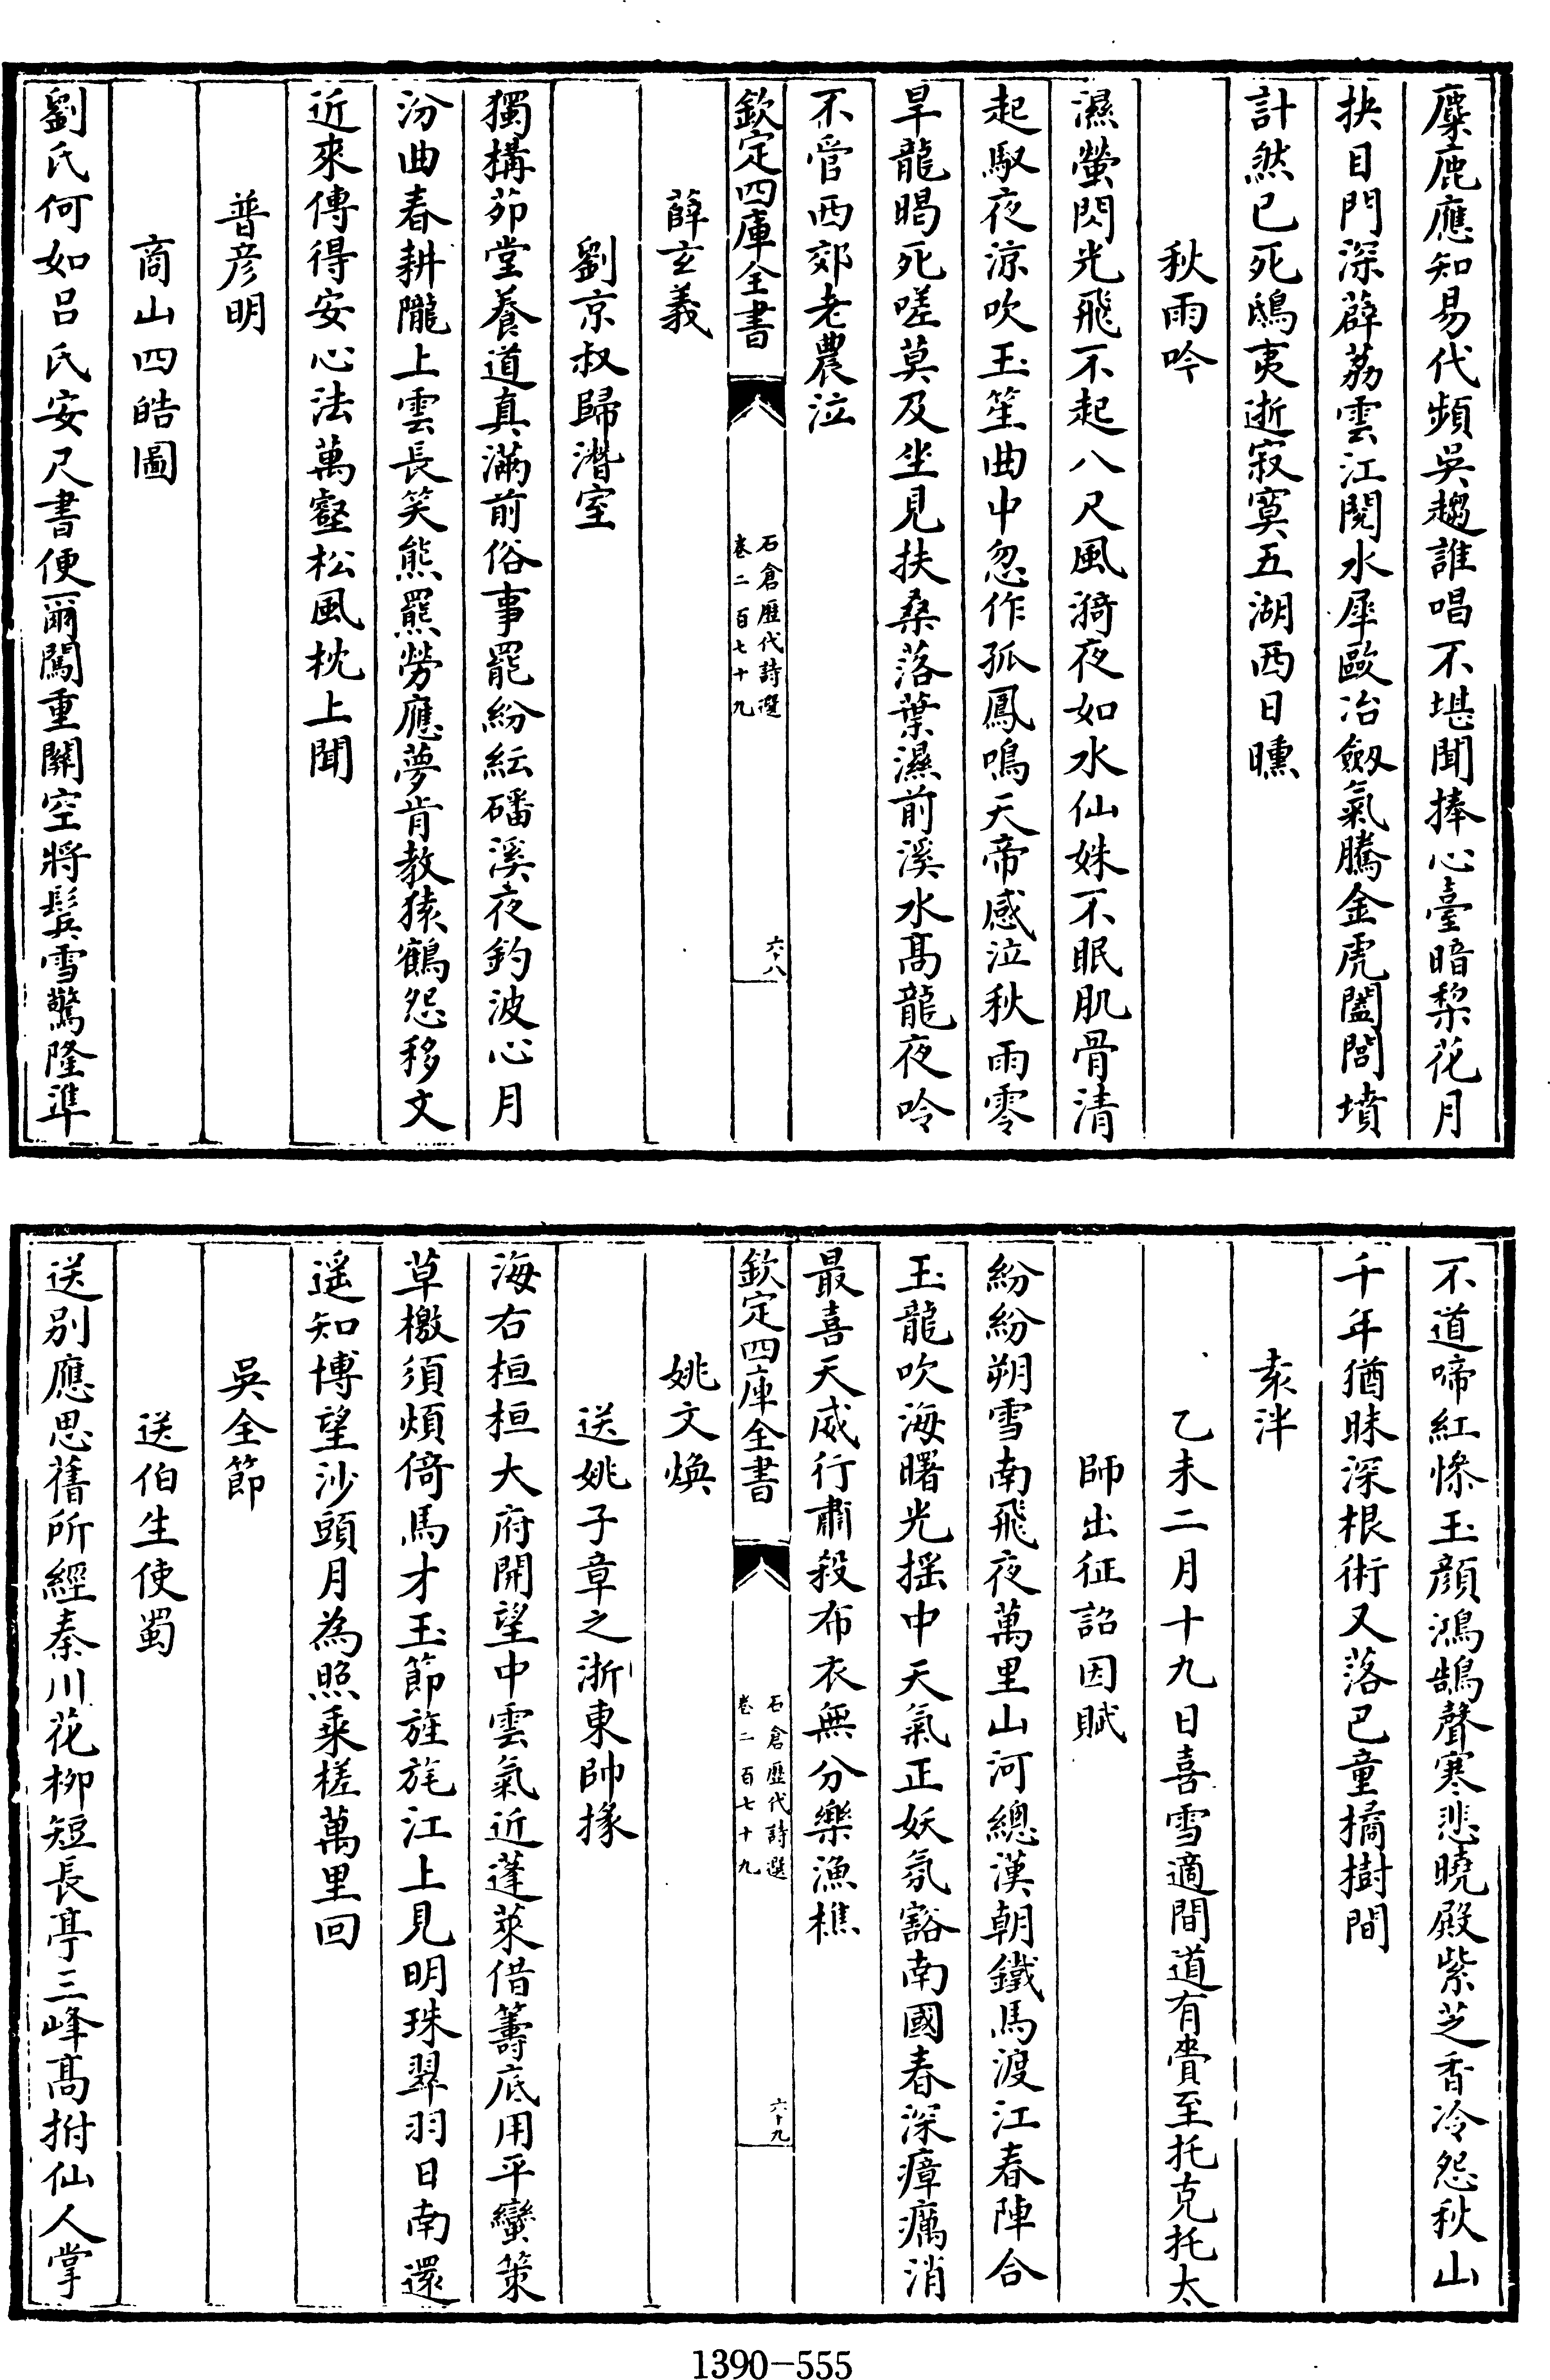 麋鹿應知易代頻吳趨誰唱不堪聞捧心臺暗梨花月
抉目門深薜荔雲江閱水犀歐冶劔氣騰金虎闔閭墳
計然已死鴟夷逝寂寞五湖西日曛
秋雨吟
濕螢閃光飛不起八尺風漪夜如水仙姝不眠肌骨清
起馭夜涼吹玉笙曲中忽作孤鳳鳴天帝感泣秋雨零
旱龍暍死嗟莫及坐見扶桑落葉濕前溪水髙龍夜吟
不管西郊老農泣
欽定四庫全書
石倉歷代詩選
卷二百七十九
六十八
薛玄義
劉京叔歸潛室
獨構茆堂養道真滿前俗事罷紛紜磻溪夜釣波心月
汾曲春耕隴上雲長笑熊羆勞應夢肯教猿鶴怨移文
近來傳得安心法萬壑松風枕上聞
普彥明
商山四皓圖
劉氏何如呂氏安尺書便爾闖重關空將鬢雪驚隆準
不道啼紅慘玉顔鴻鵠聲寒悲曉殿紫芝香冷怨秋山
千年猶昧深根術又落巴童橘樹間
袁泮
乙未二月十九日喜雪適間道有賫至托克托太
師出征詔因賦
紛紛朔雪南飛夜萬里山河總漢朝鐵馬渡江春陣合
玉龍吹海曙光揺中天氣正妖氛豁南國春深瘴癘消
最喜天威行肅殺布衣無分樂漁樵
欽定四庫全書
石倉歷代詩選
卷二百七十九
六十九
姚文煥
送姚子章之浙東帥掾
海右桓桓大府開望中雲氣近蓬萊借籌底用平蠻策
草檄須煩倚馬才玉節旌旄江上見明珠翠羽日南還
遥知博望沙頭月為照乘槎萬里回
吳全節
送伯生使蜀
送别應思舊所經秦川花柳短長亭三峰髙拊仙人掌
1390-555